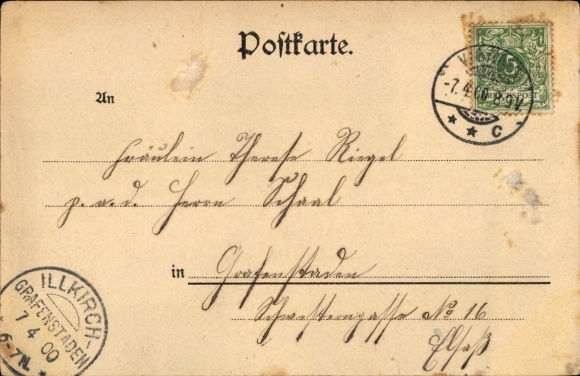 Postkarte.
-7.4.00.8-9V.
* * C
5
An
Fräulein Therese Riegel
p. a. d. Herrn Schaal
in Grafenstaden
Schwesterngasse No 16
Elsaß
ILLKIRCH-
GRAFENSTADEN
7 4 00
6-7N.
*